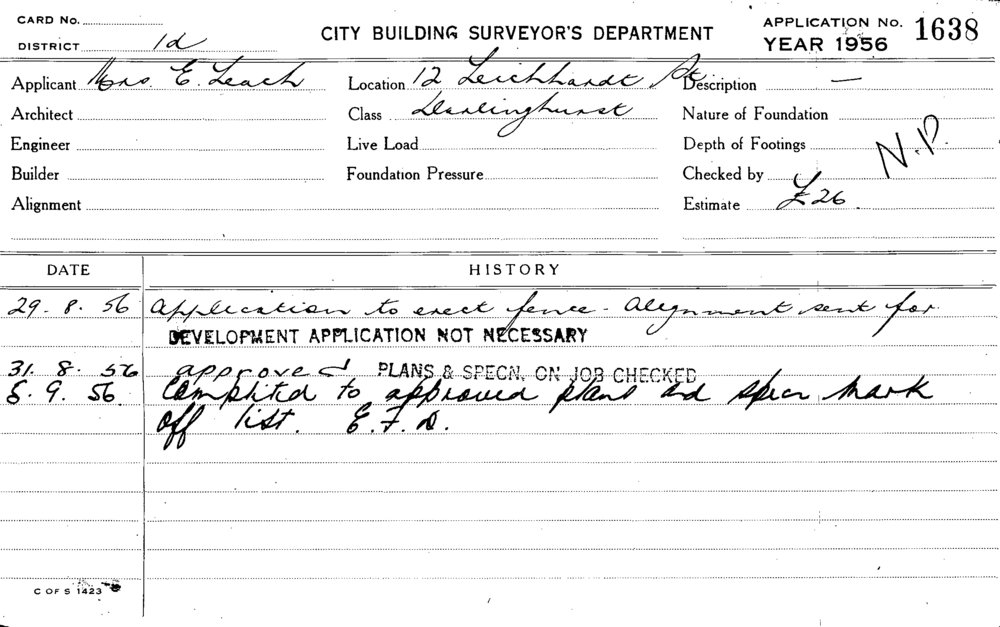 CARD No.
DISTRICT 1d
CITY BUILDING SURVEYOR'S DEPARTMENT
APPLICATION No. 1638
YEAR 1956
Applicant Mrs. E. Leach
Location 12 Leichhardt St
Description —
Architect
Class Darlinghurst
Nature of Foundation
Engineer
Live Load
Depth of Footings
N.D.
Builder
Foundation Pressure
Checked by
Alignment
Estimate £26.
DATE HISTORY
29. 8. 56 Application to erect fence - Alignment sent for
DEVELOPMENT APPLICATION NOT NECESSARY
31. 8. 56 approved PLANS & SPECN. ON JOB CHECKED
5. 9. 56 Completed to approved plans and specn mark
off list. E.F.D.
C OF S 1423